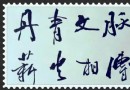 丹青文脉
薪火相傳